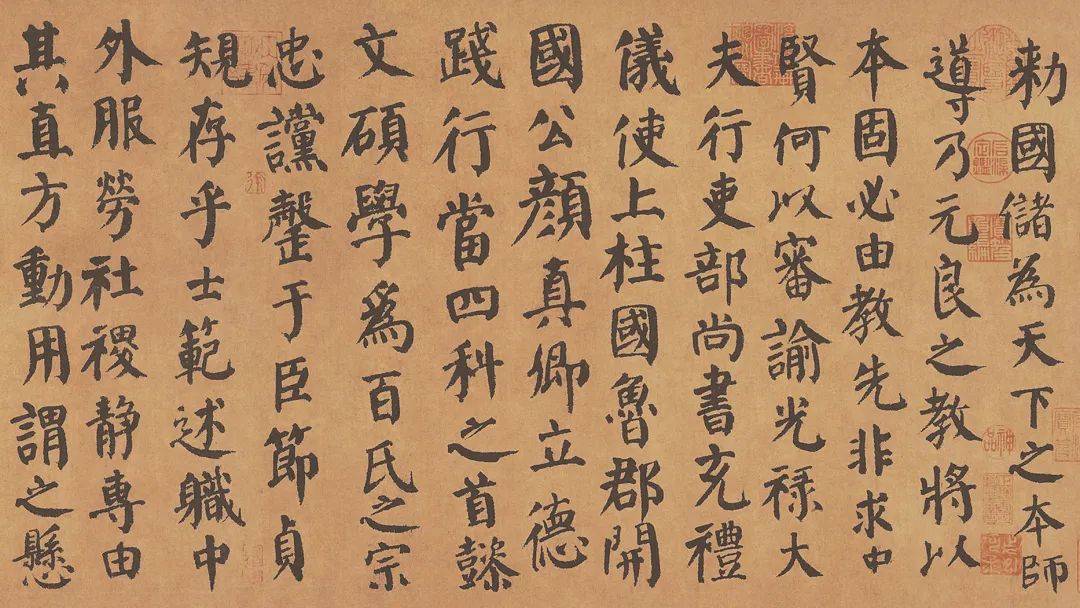 勑國儲為天下之本師
導乃元良之教將以
本固必由教先非求中
賢何以審諭光祿大
夫行吏部尚書充禮
儀使上柱國魯郡開
國公顏真卿立德
踐行當四科之首懿
文碩學爲百氏之宗
忠讜罄于臣節貞
規存乎士範述職中
外服勞社稷靜專由
其直方動用謂之懸